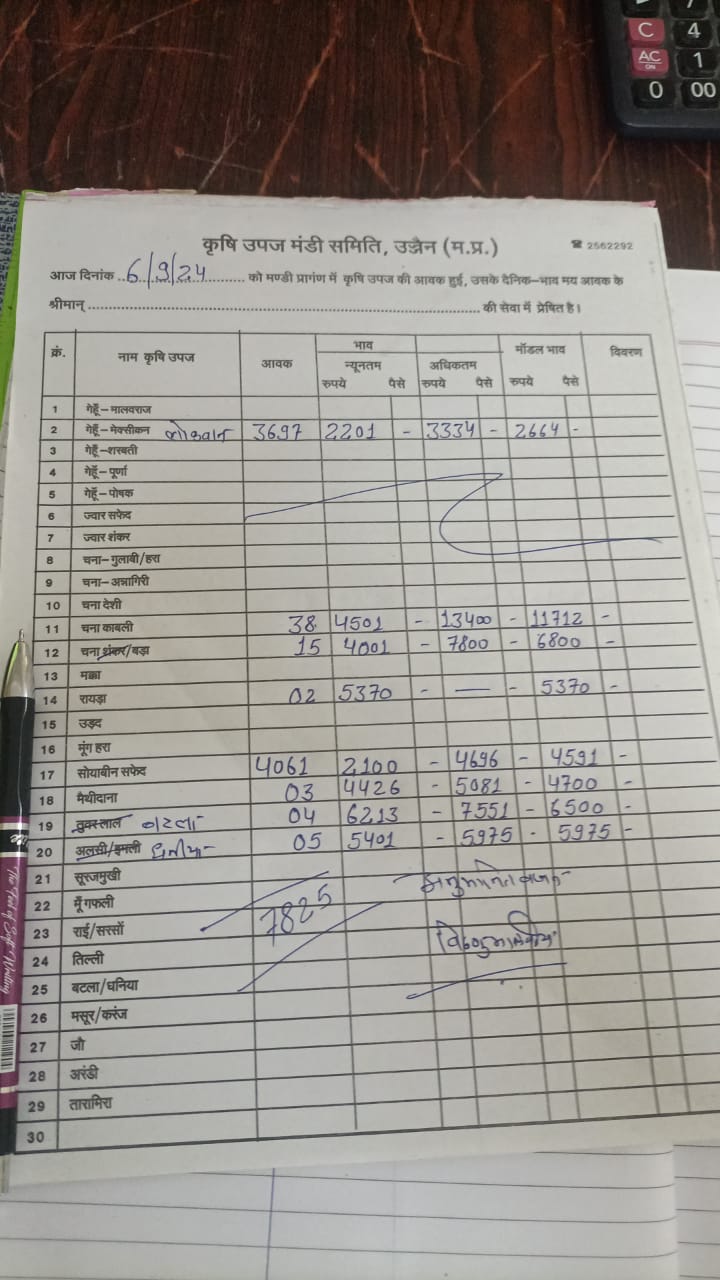 C 4
AC ON 1
0 00
कृषि उपज मंडी समिति, उज्जैन (म.प्र.) ☎ 2562292
आज दिनांक ..6/9/24.......... को मण्डी प्रागंण में कृषि उपज की आवक हुई, उसके दैनिक-भाव मय आवक के
श्रीमान् .......... की सेवा में प्रेषित है।
क्रं. नाम कृषि उपज आवक भाव मॉडल भाव विवरण
न्यूनतम अधिकतम
रुपये पैसे रुपये पैसे रुपये पैसे
1 गेहूँ-मालवराज
2 गेहूँ-मेक्सीकन लोकवान 3697 2201 - 3334 - 2664 -
3 गेहूँ-शरबती
4 गेहूँ-पूर्णा
5 गेहूँ-पोषक
6 ज्वार सफेद
7 ज्वार शंकर
8 चना-गुलाबी/हरा
9 चना-अन्नागिरी
10 चना देशी
11 चना काबली 38 4501 - 13400 - 11712 -
12 चना शंकर/बड़ा 15 4001 - 7800 - 6800 -
13 मक्का
14 रायड़ा 02 5370 - — - 5370 -
15 उड़द
16 मूंग हरा
17 सोयाबीन सफेद 4061 2100 - 4696 - 4591 -
18 मैथीदाना 03 4426 - 5081 - 4700 -
19 तुवर लाल बटला 04 6213 - 7551 - 6500 -
20 अलसी/इमली धनीया 05 5401 - 5975 - 5975 -
21 सूरजमुखी
22 मूँगफली 7825
23 राई/सरसों
24 तिल्ली
25 बटला/धनिया
26 मसूर/करंज
27 जौ
28 अरंडी
29 तारामिरा
30
The Feel of Soft Writing